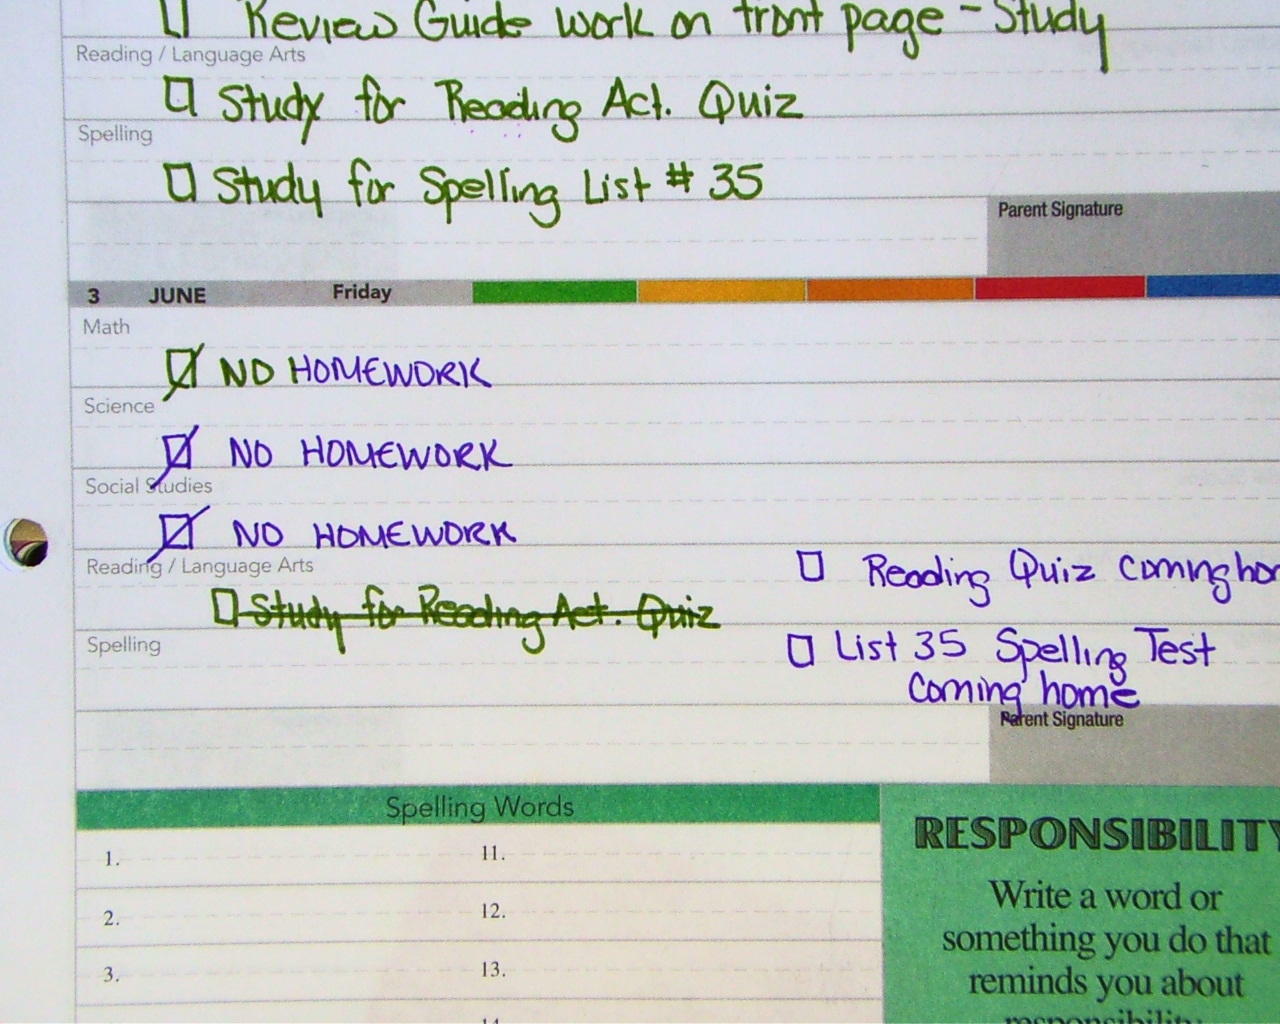 Review Guide work on front page - Study
Reading / Language Arts
Study for Reading Act. Quiz
Spelling
Study for Spelling List # 35
Parent Signature
3 JUNE Friday
Math
NO HOMEWORK
Science
NO HOMEWORK
Social Studies
NO HOMEWORK
Reading / Language Arts
Reading Quiz coming hom
Study for Reading Act. Quiz
Spelling
List 35 Spelling Test
Coming home
Parent Signature
Spelling Words
1. 11.
2. 12.
3. 13.
14
RESPONSIBILITY
Write a word or
something you do that
reminds you about
responsibility.